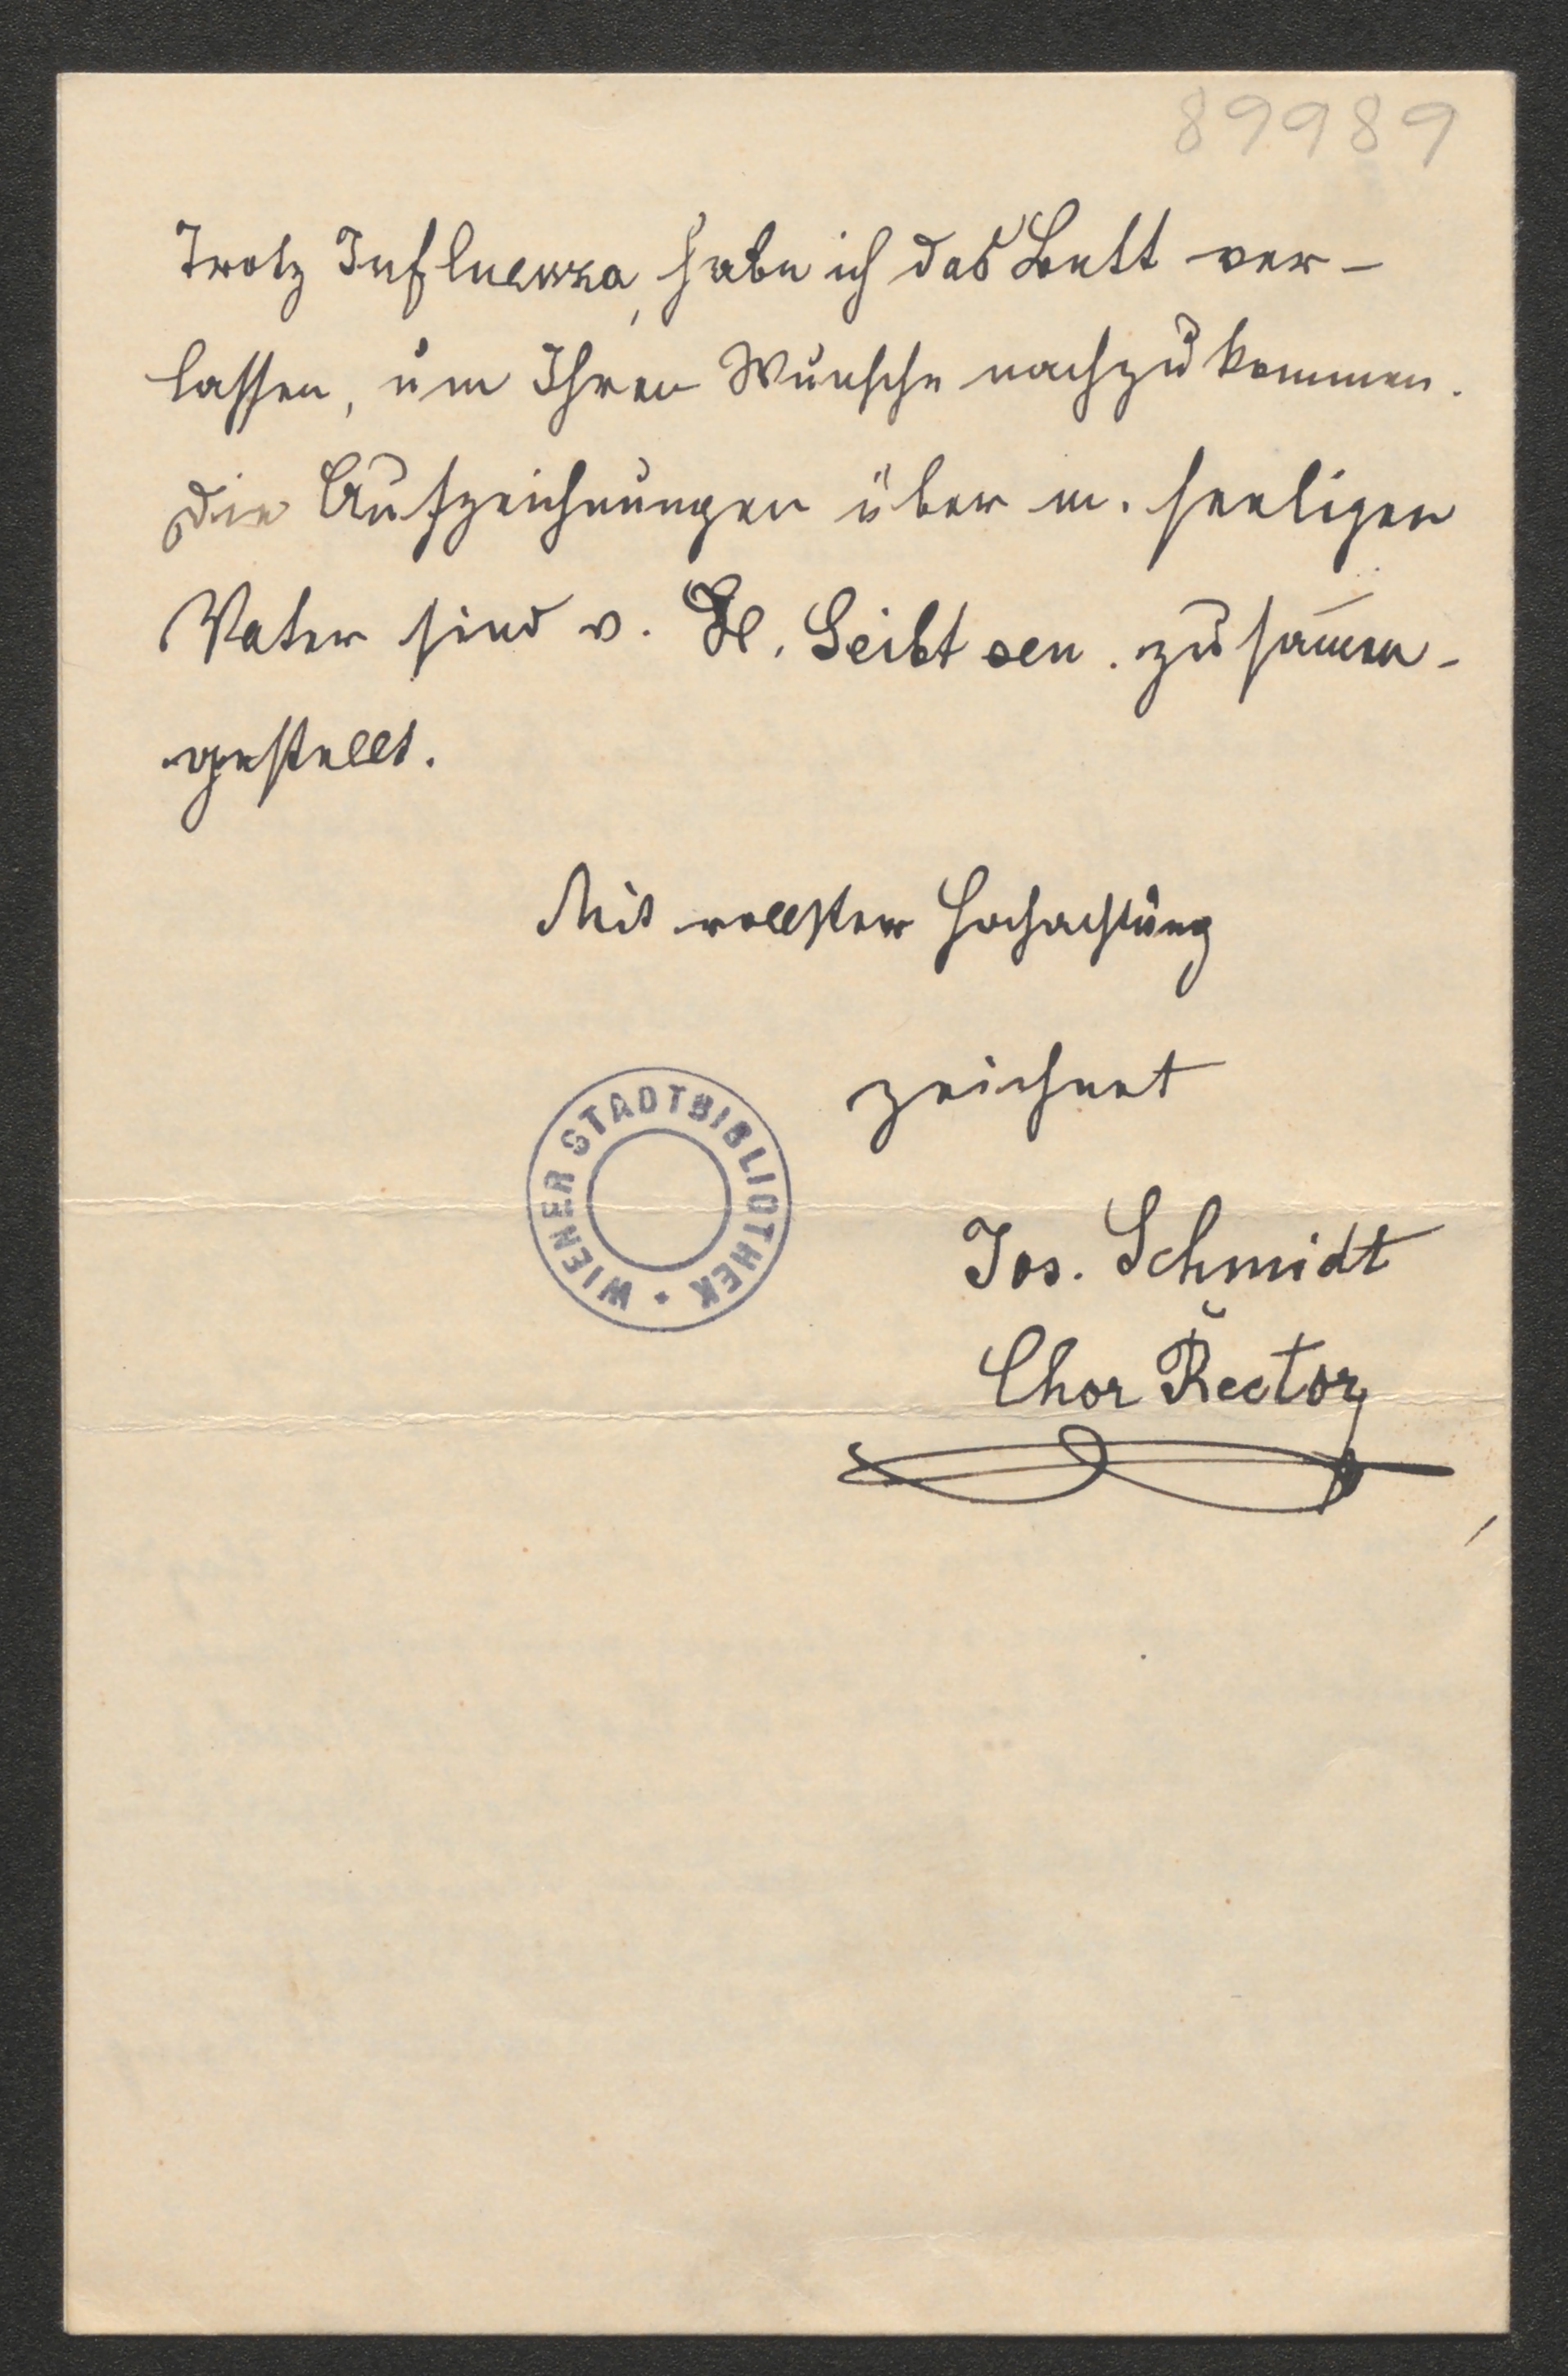 89989
Trotz Influenza, habe ich das Bett ver-
lassen, um Ihren Wunsche nachzukommen.
Die Aufzeichnungen über m. seeligen
Vater sind v. H. Seibt sen. zusam̅en-
gestellt.
Mit vollster Hochachtung
zeichnet
WIENER STADTBIBLIOTHEK *
Jos. Schmidt
Chor Rector